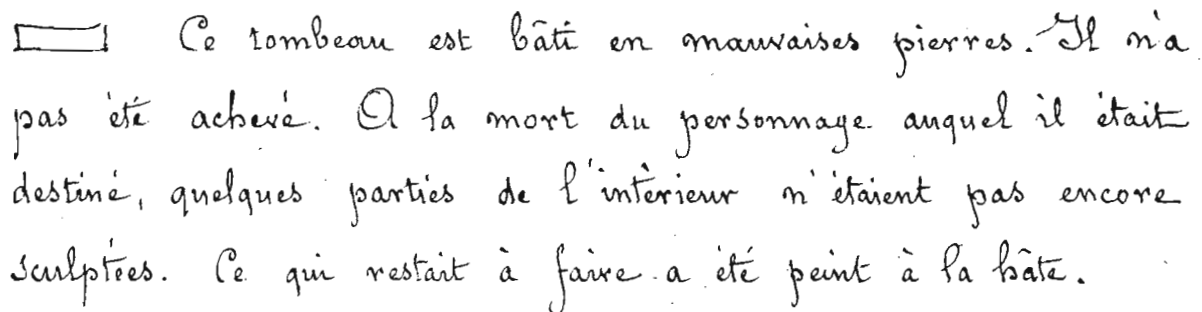 Ce tombeau est bâti en mauvaises pierres. Il n'a
pas été achevé. A la mort du personnage auquel il était
destiné, quelques parties de l'intérieur n'étaient pas encore
sculptées. Ce qui restait à faire a été peint à la hâte.